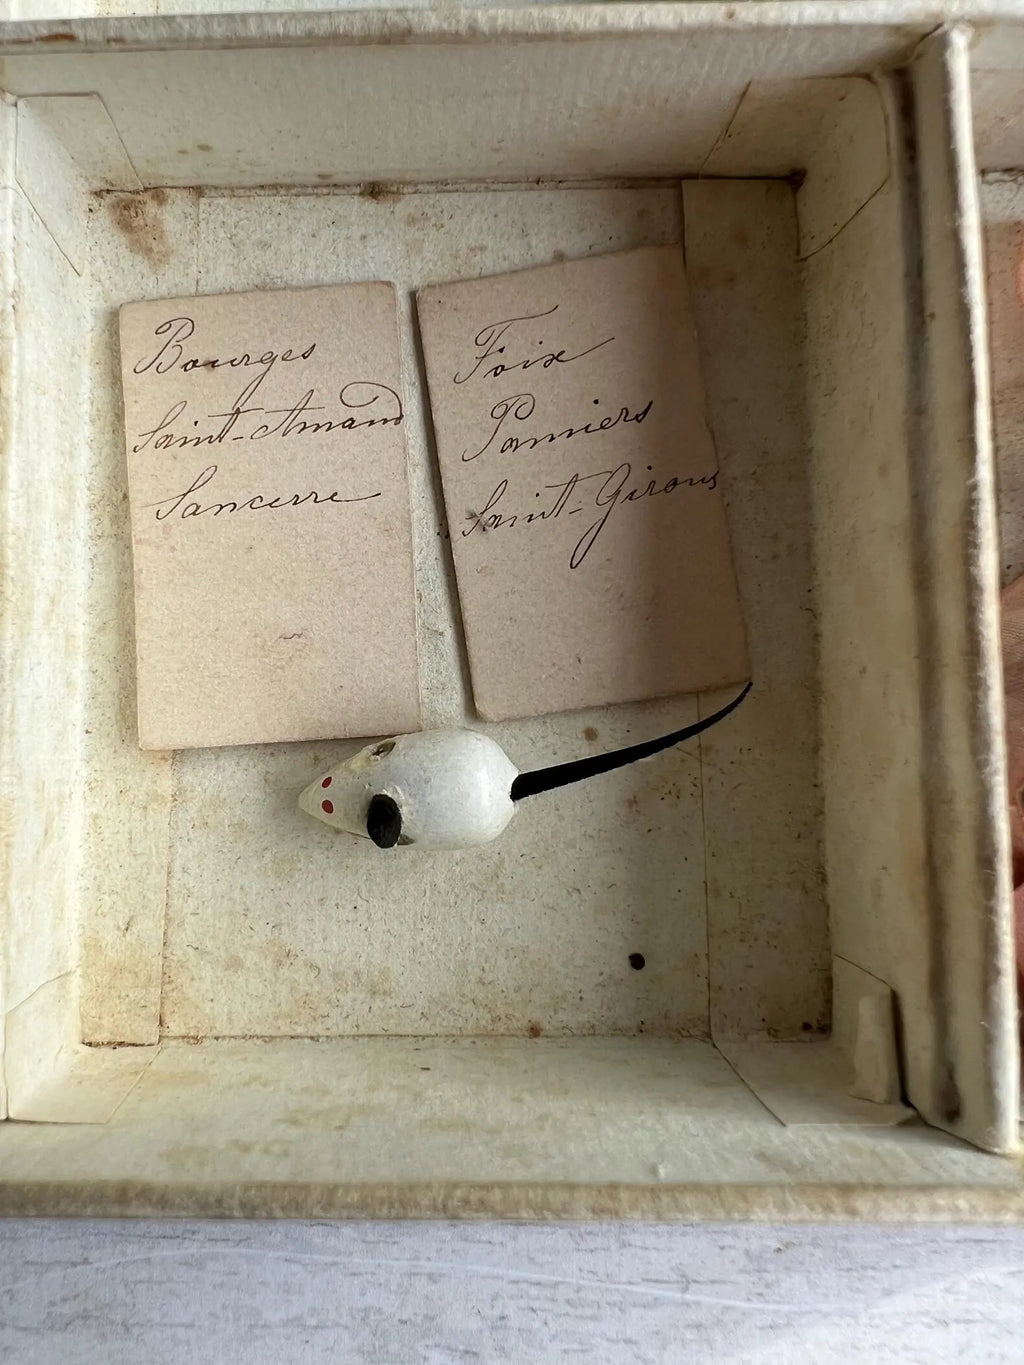 Bourges
Saint-Amand
Sancerre
Foix
Pamiers
Saint-Girons